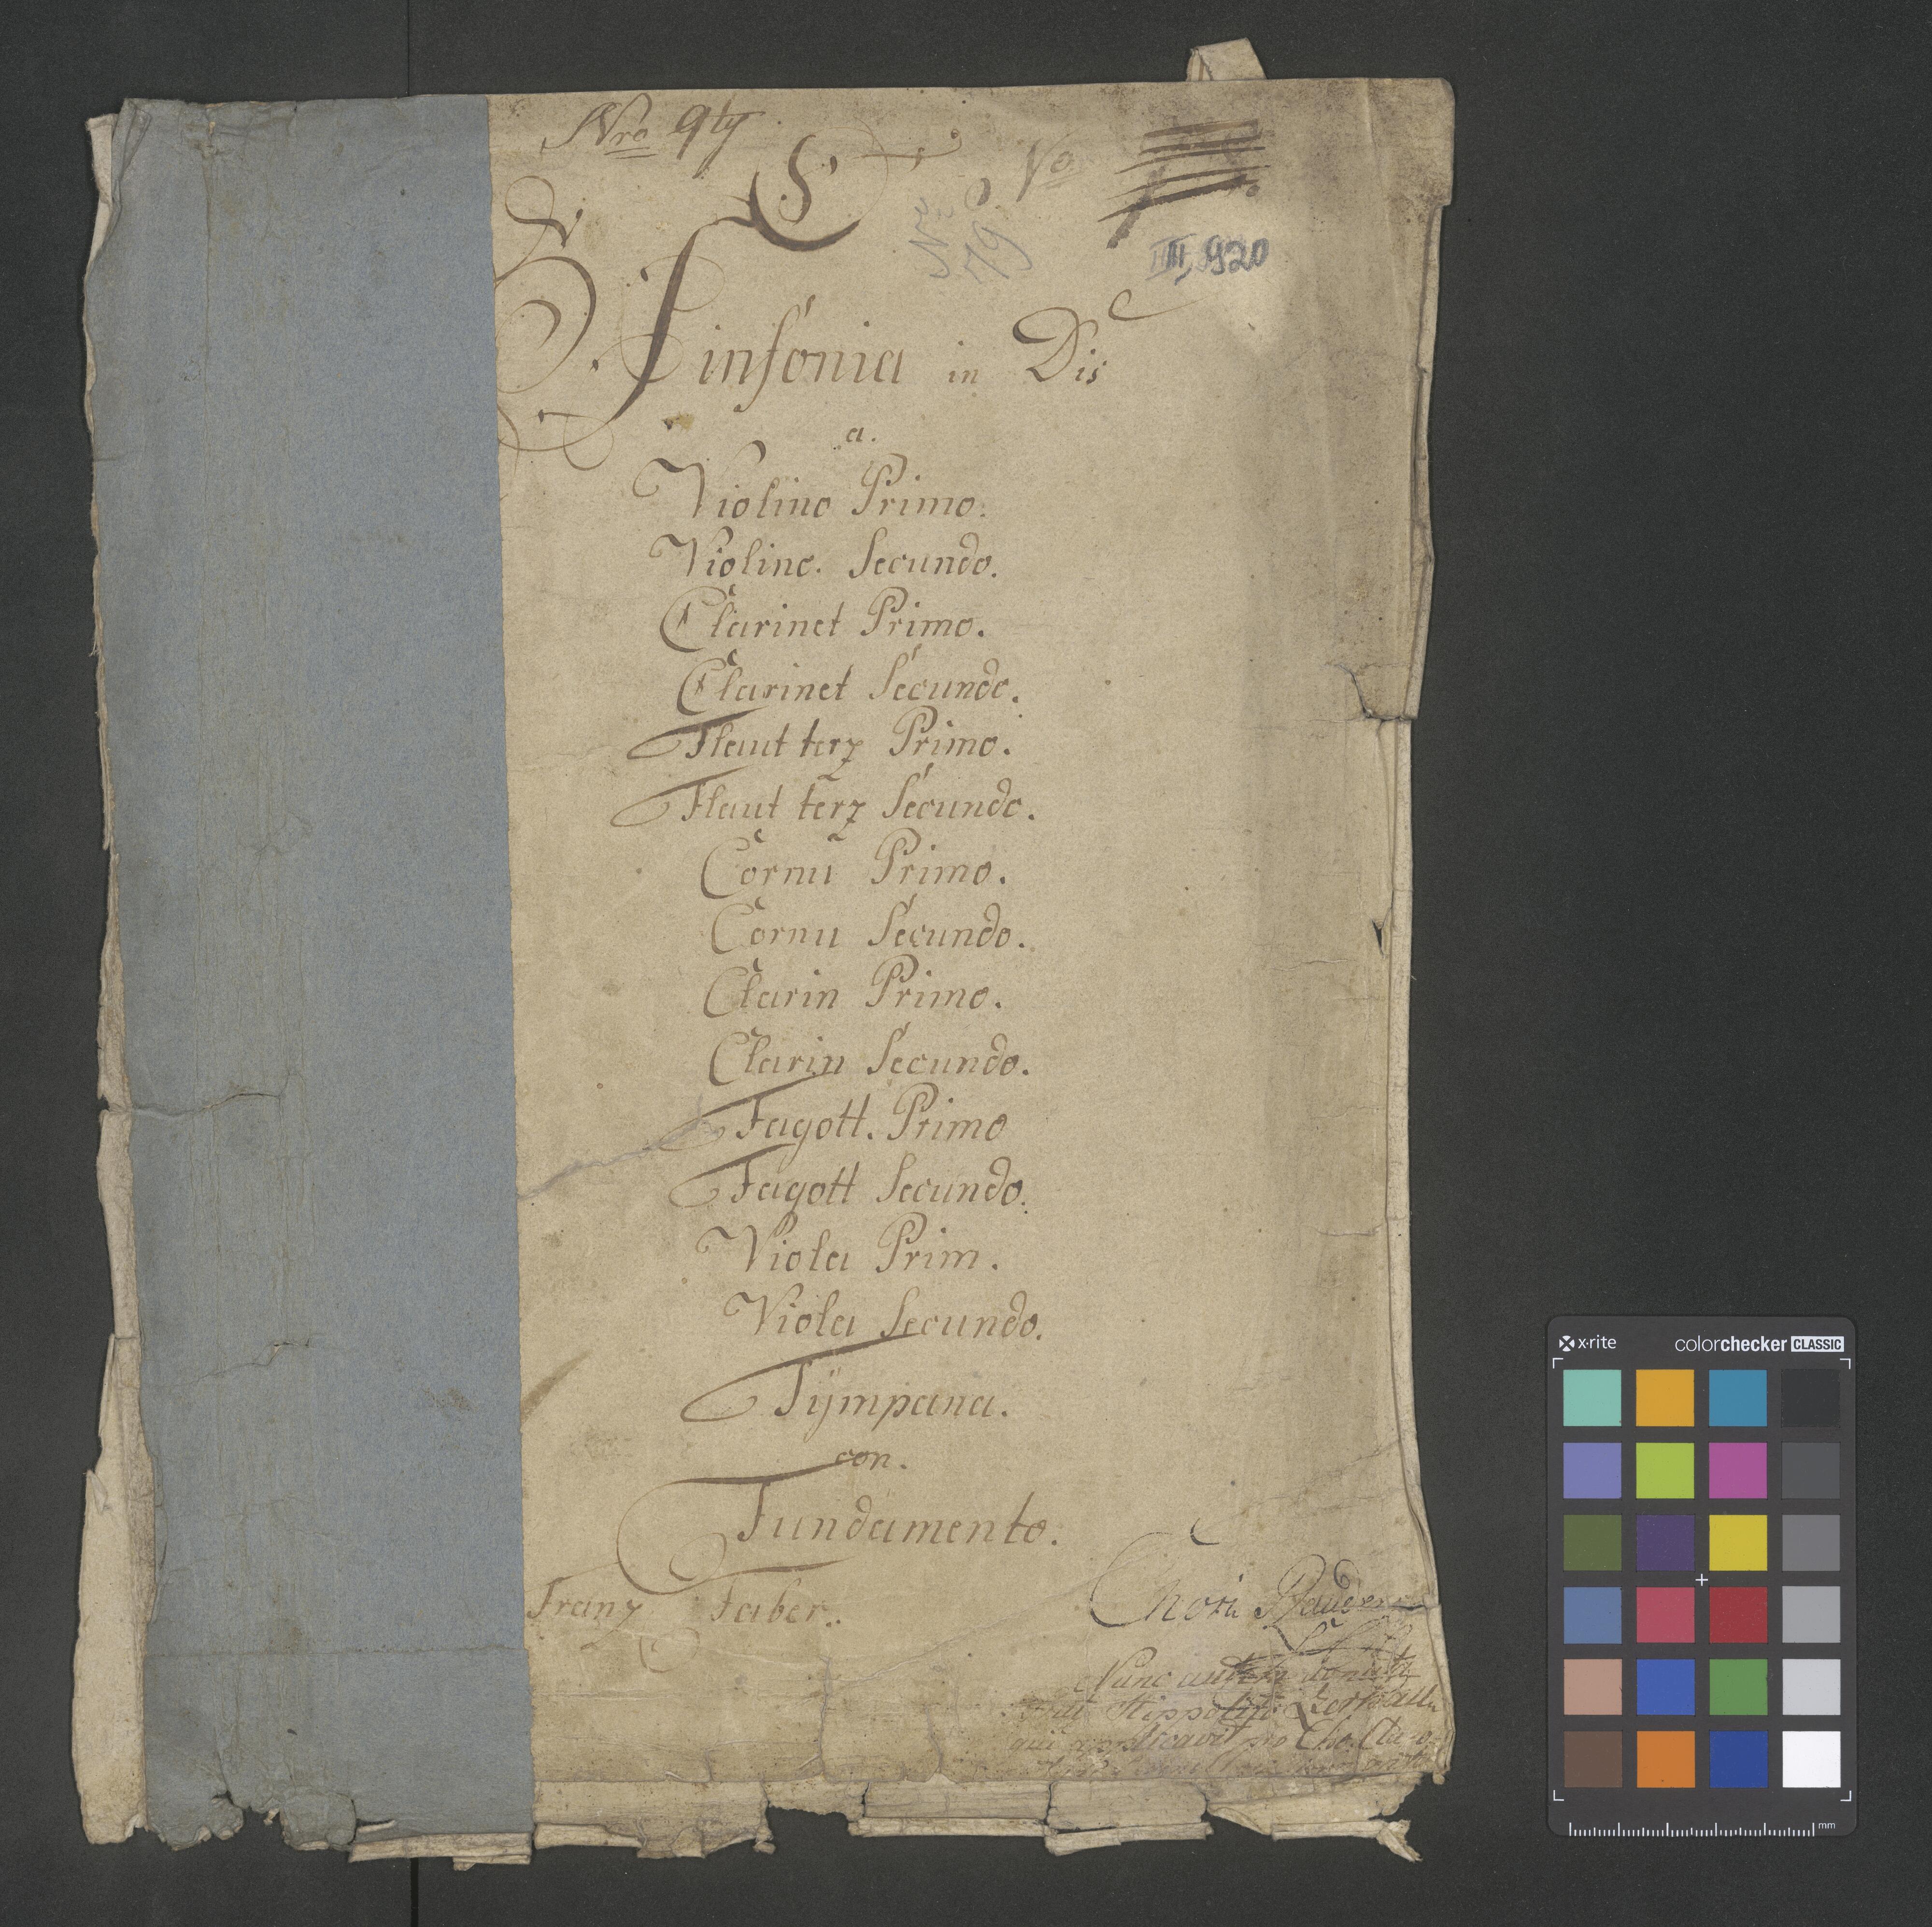 Nro 9ty
S
Nro
79
No
III, 920
Sinfonia in Dis
a.
Violino Primo.
Violino. Secundo.
Clarinet Primo.
Clarinet Secundo.
Flaut terz Primo.
Flaut terz Secundo.
Cornu Primo.
Cornu Secundo.
Clarin Primo.
Clarin Secundo.
Fagott. Primo
Fagott Secundo.
Viola Prim.
Viola Secundo.
Tympana.
con.
Fundamento.
Franz Faber.
Chori
Nunc autem
Hippoliti
pro
x·rite colorchecker CLASSIC
mm